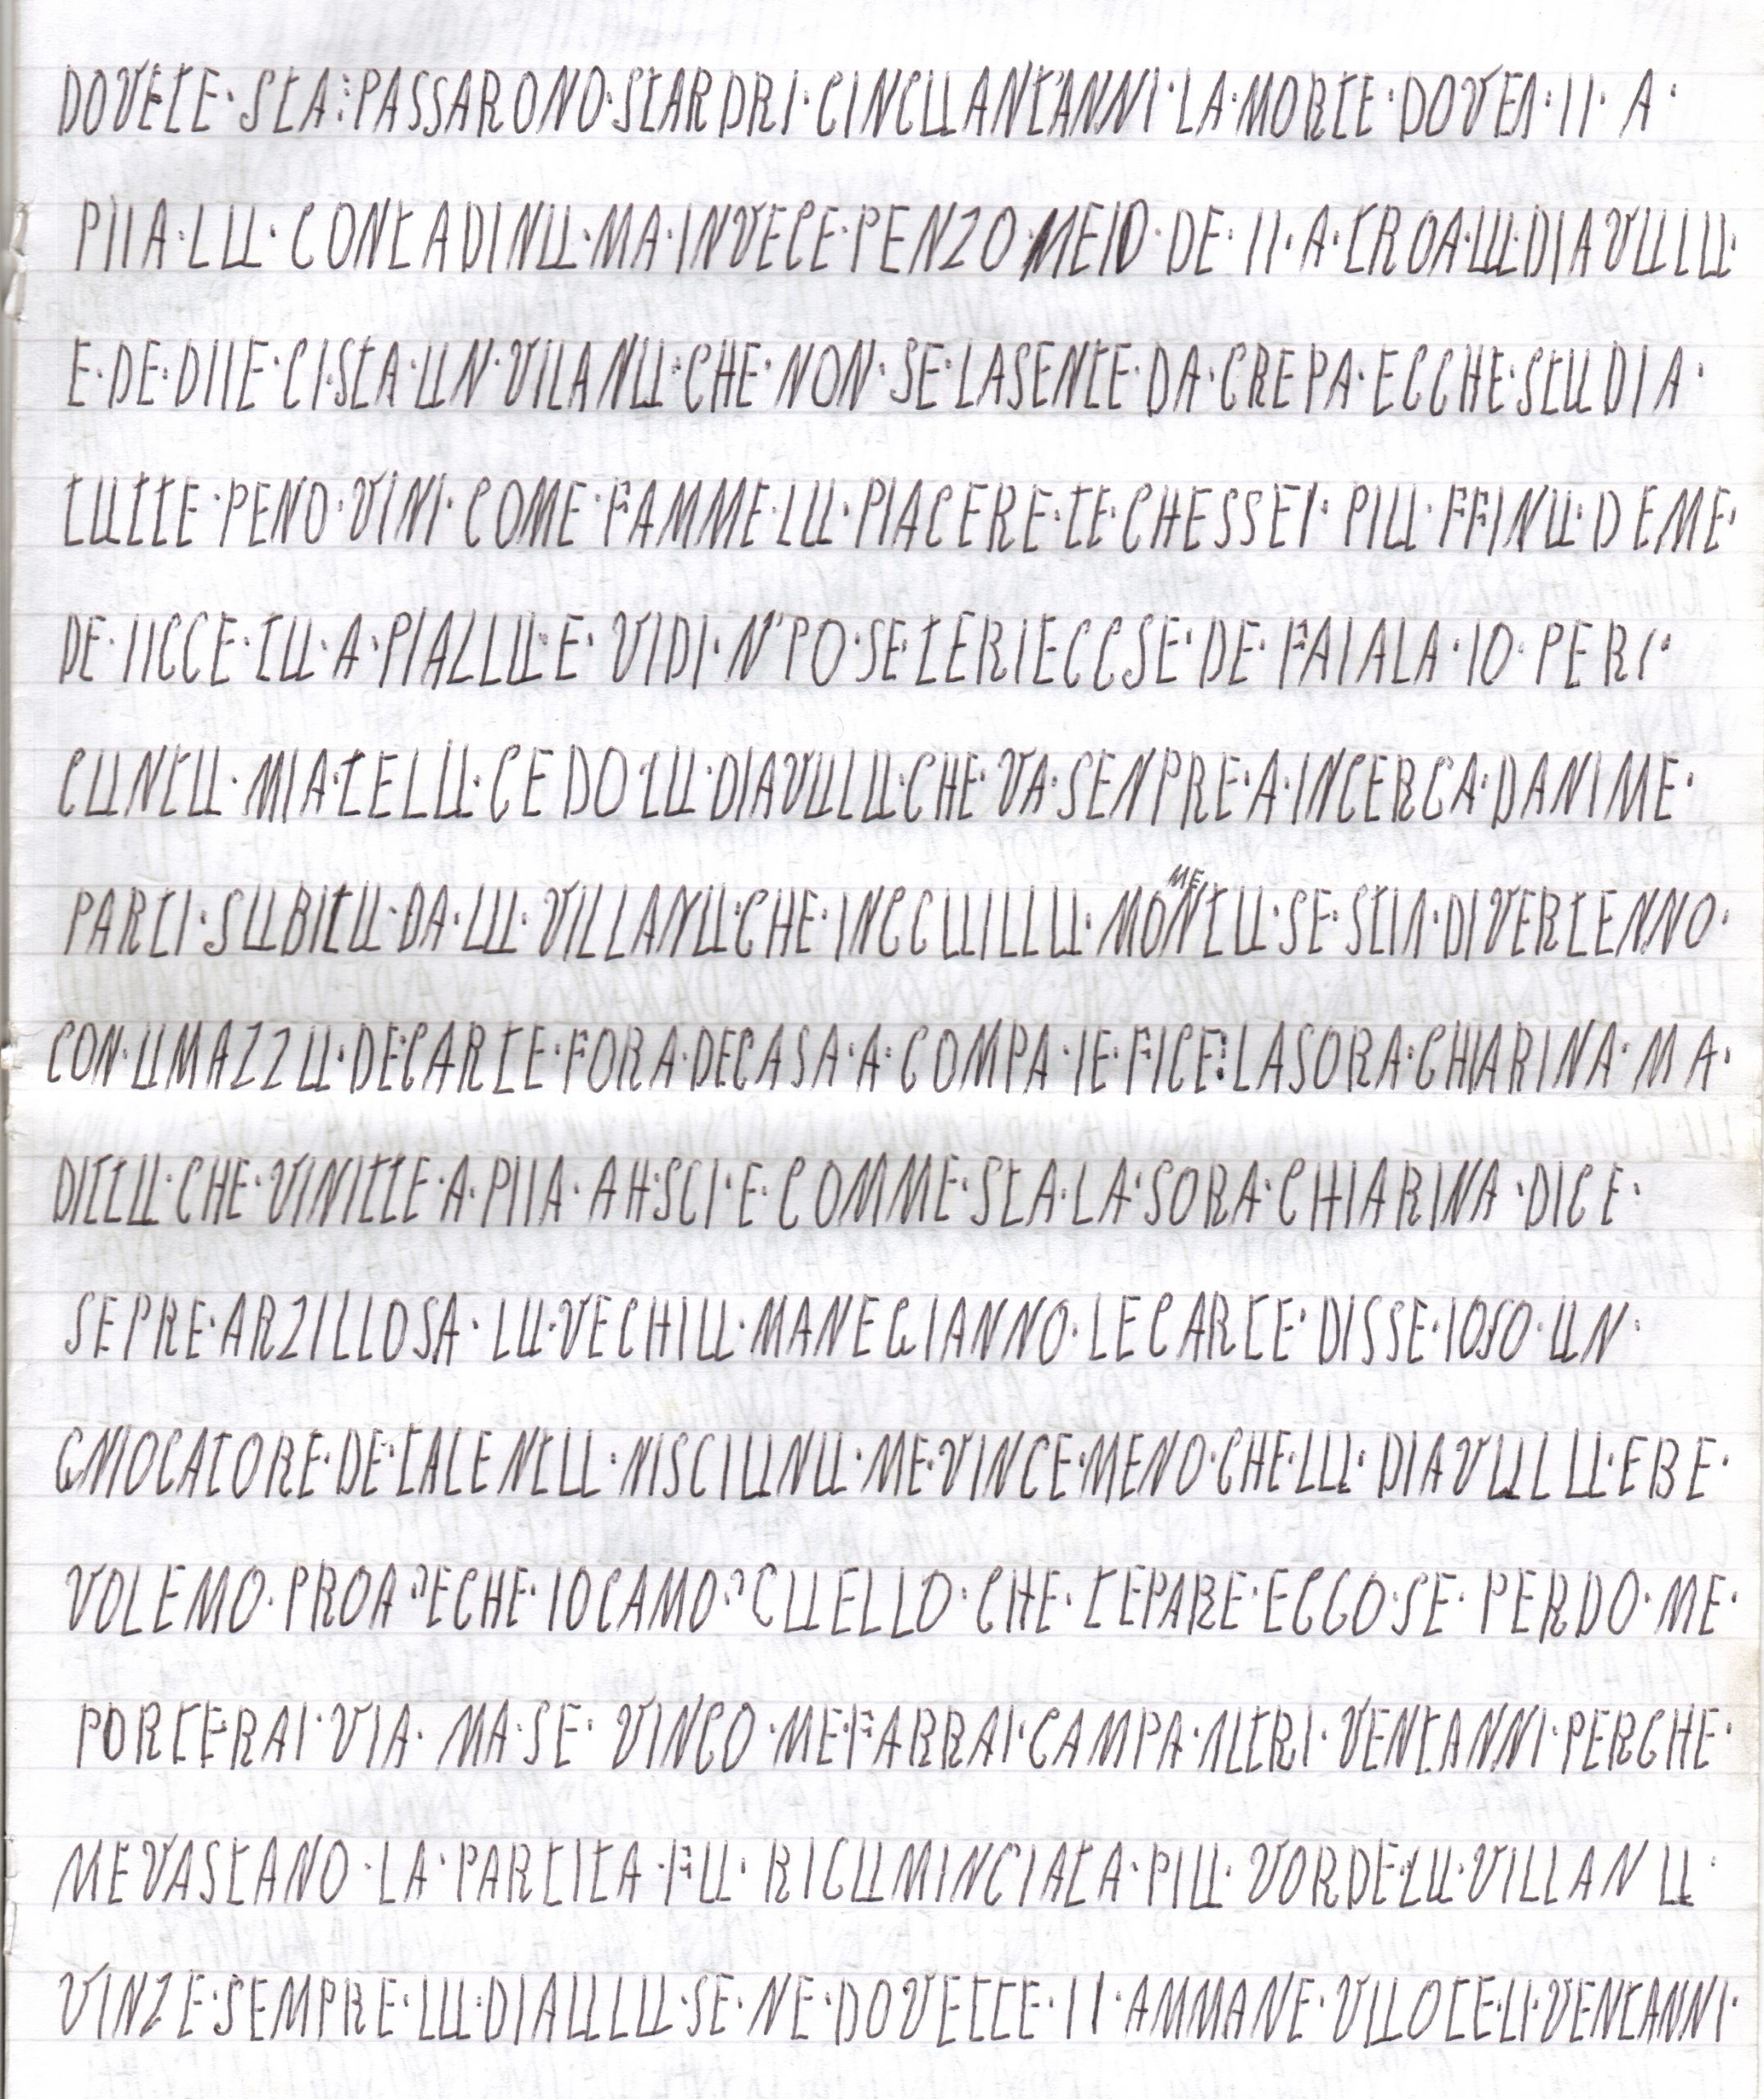 DOVETE·STA:PASSARONO·STARDRI·CINCUANT'ANNI·LA·MORTE·DOVEA·II·A·
PIIA·LU·CONTADINU·MA·INVECE·PENZO·MEIO·DE·II·A·TROA·LU·DIAVULU·
E·DE·DIIE·CI·STA·UN·VILANU·CHE·NON·SE·LASENTE·DA·CREPA·ECCHE·STUDIA·
TUTTE·PENO·VINI·COME·FAMME·LU·PIACERE·TE·CHESSEI·PIU·FFINU·DEME·
DE·IICCE·TU·A·PIALLU·E·VIDI·N'PO·SE·TERIECCSE·DE·FAIALA·IO·PERI·
CUNTU·MIA·TELU·CEDO·LU·DIAVULU·CHE·VA·SENPRE·A·INCERCA·DANIME·
PARTI·SUBITU·DA·LU·VILLANU·CHE·INCCUILLU·MOMENTU·SE·STIA·DIVERTENNO·
CON·UMAZZU·DECARTE·FORA·DECASA·A·COMPA·IE·FICE:LASORA·CHIARINA·MA·
DITTU·CHE·VINITTE·A·PIIA·AH·SCI·E·COMME·STA·LA·SORA·CHIARINA·DICE·
SEPRE·ARZILLOSA·LU·VECHIU·MANEGIANNO·LECARTE·DISSE·IOSO·UN·
GNIOCATORE·DE·TALENTU·NISCIUNU·ME·VINCE·MENO·CHE·LU·DIAVULU·EBE·
VOLEMO·PROA?ECHE·IOCAMO?CUELLO·CHE·TEPARE·ECCO·SE·PERDO·ME·
PORTERAI·VIA·MA·SE·VINCO·ME·FARRAI·CAMPA·ALTRI·VENTANNI·PERCHE·
MEVASTANO·LA·PARTITA·FU·RICUMINCIATA·PIU·VORDE·LU·VILLANU·
VINZE·SEMPRE·LU·DIAULU·SE·NE·DOVETTE·II·AMMANE·VUOTE·LI·VENTANNI·